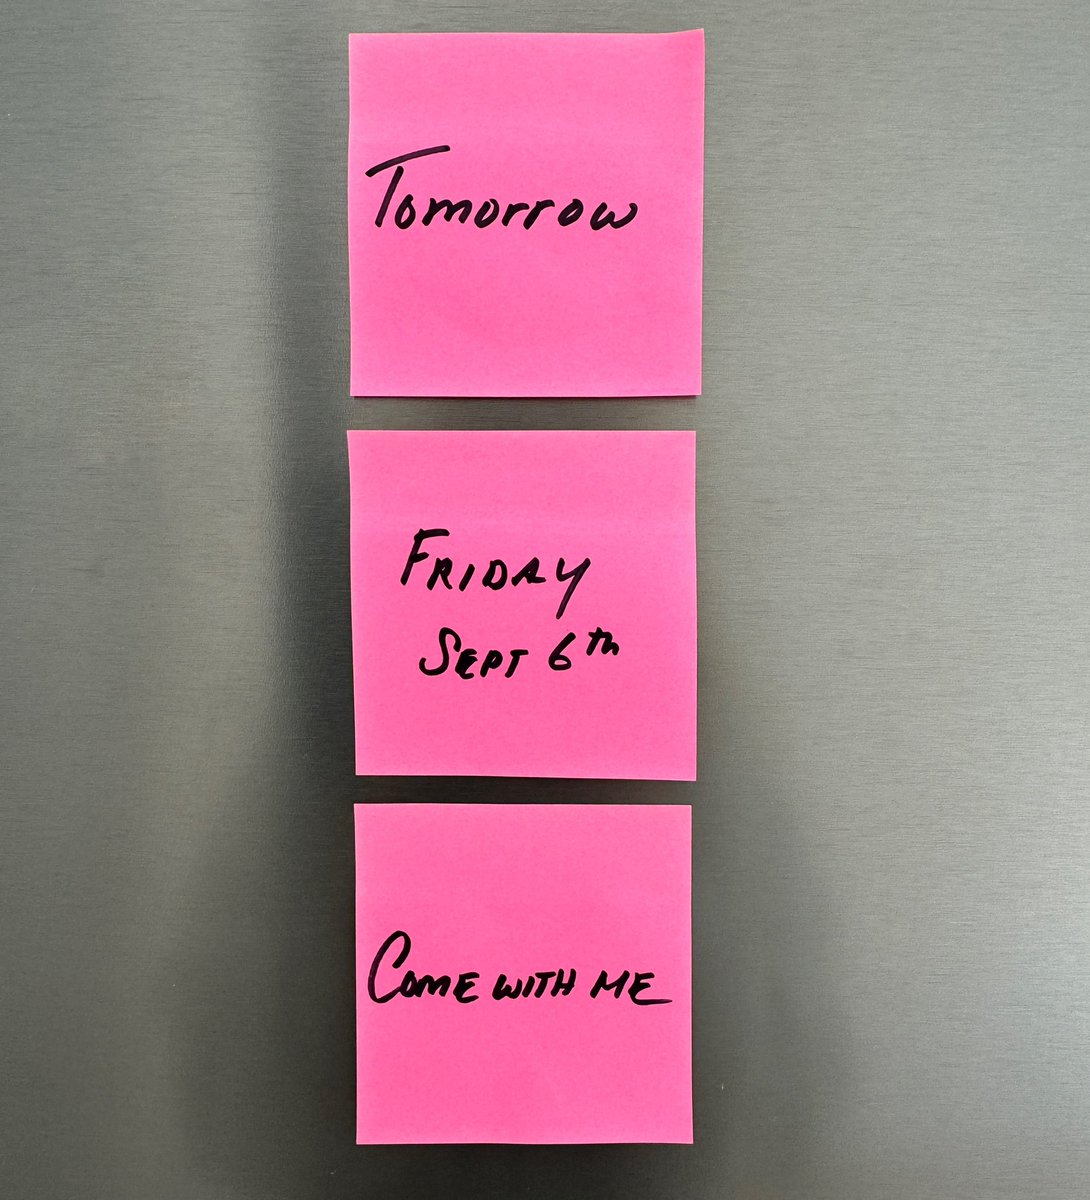 Tomorrow
FRIDAY
SEPT 6th
COME WITH ME